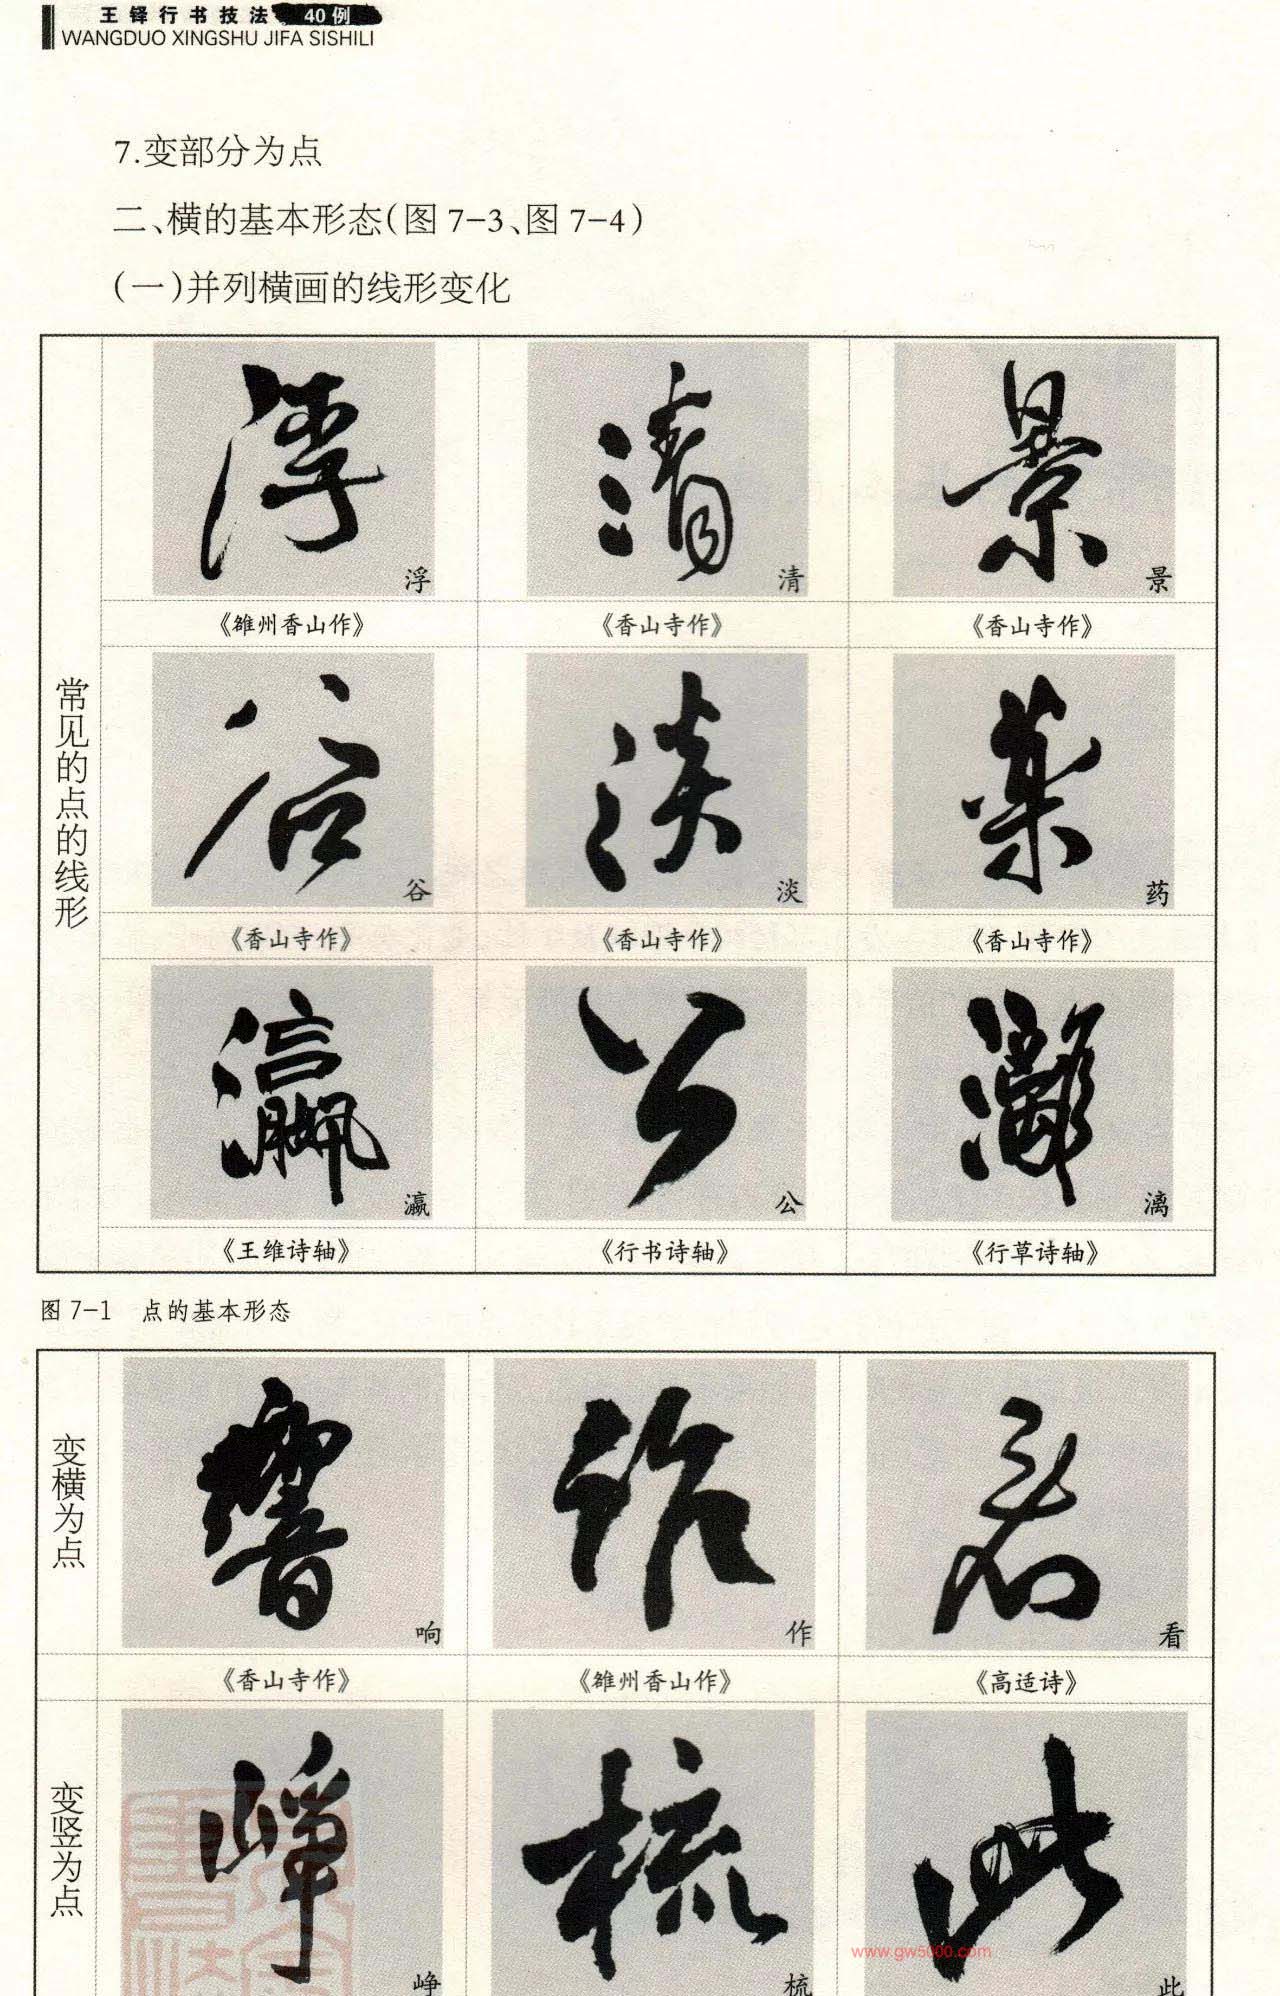 王铎行书技法 40例
WANGDUO XINGSHU JIFA SISHILI
7.变部分为点
二、横的基本形态(图7-3、图7-4)
(一)并列横画的线形变化
常见的点的线形
浮 清 景
《雒州香山作》 《香山寺作》 《香山寺作》
谷 淡 药
《香山寺作》 《香山寺作》 《香山寺作》
瀛 公 漓
《王维诗轴》 《行书诗轴》 《行草诗轴》
图7-1 点的基本形态
变横为点
响 作 看
《香山寺作》 《雒州香山作》 《高适诗》
变竖为点
峥 梳 此
www.gw5000.com